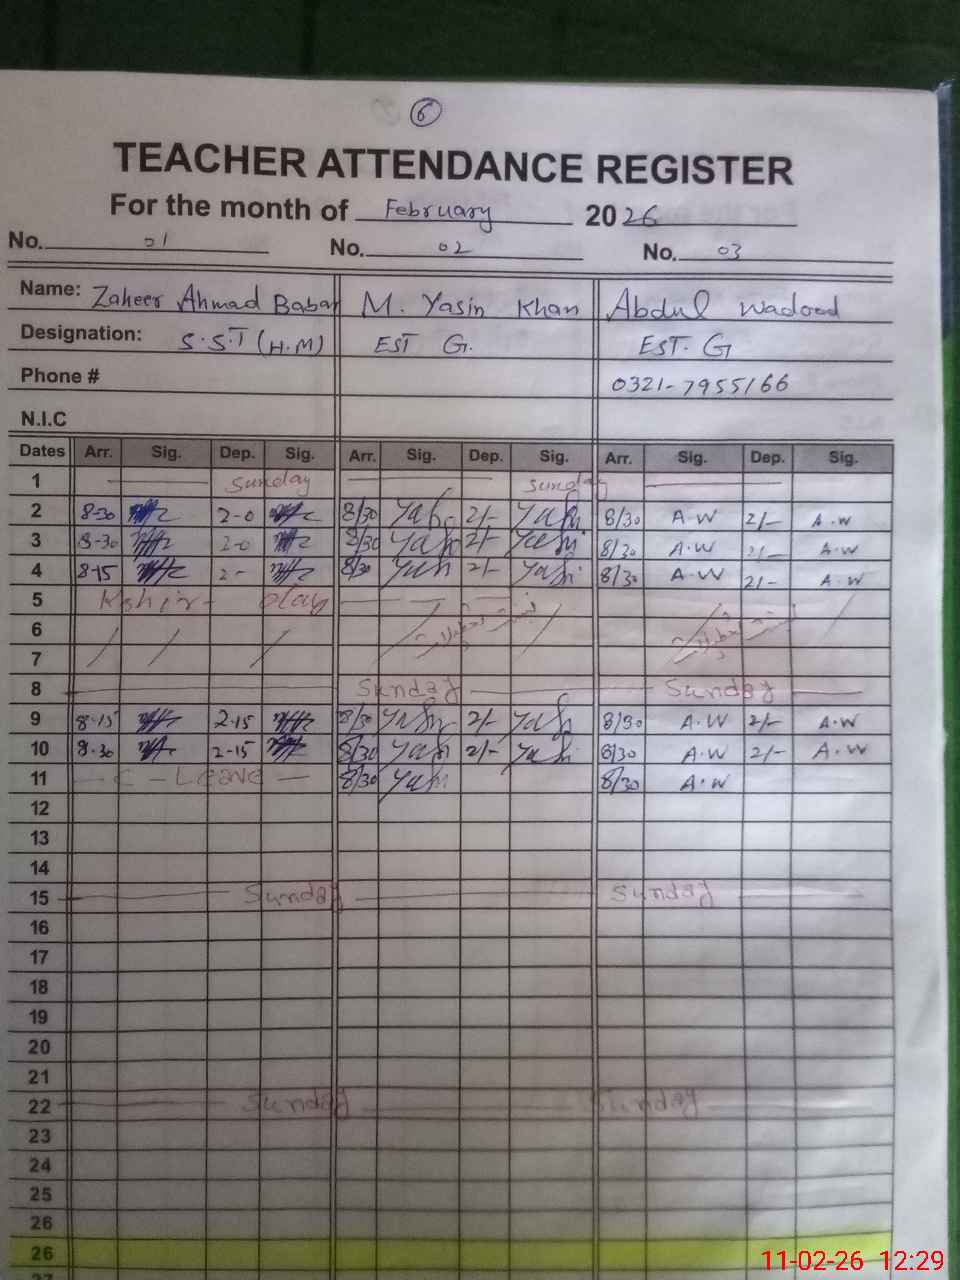 6
TEACHER ATTENDANCE REGISTER
For the month of February 2026
No. 01 No. 02 No. 03
Name: Zaheer Ahmad Babar M. Yasin Khan Abdul Wadood
Designation: S.S.T (H.M) EST G. EST. G
Phone # 0321-7955166
N.I.C
Dates Arr. Sig. Dep. Sig. Arr. Sig. Dep. Sig. Arr. Sig. Dep. Sig.
1 Sunday Sunday
2 8-30 2-0 8/30 Yash 2/- Yash 8/30 A.W 2/- A.W
3 8-30 2-0 8/30 Yash 2/- Yash 8/30 A.W 2/- A.W
4 8-15 2- 8/30 Yash 2/- Yash 8/30 A.W 2/- A.W
5
6
7
8 Sunday Sunday
9 8-15 2-15 8/30 Yash 2/- Yash 8/30 A.W 2/- A.W
10 8-30 2-15 8/30 Yash 2/- Yash 8/30 A.W 2/- A.W
11 C - Leave 8/30 Yash 8/30 A.W
12
13
14
15 Sunday Sunday
16
17
18
19
20
21
22 Sunday Sunday
23
24
25
26
26
27
11-02-26 12:29